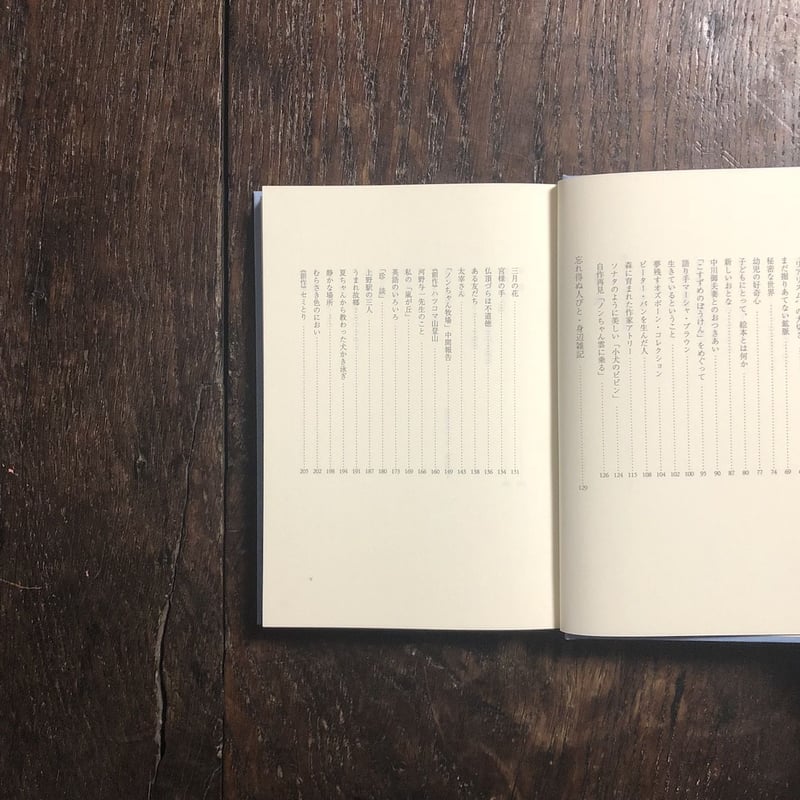 まだ掘りあてない鉱脈 69
秘密な世界 74
幼児の好奇心 77
子どもにとって、絵本とは何か 80
新しいおとな 87
中川御夫妻とのおつきあい 90
「こすずめのぼうけん」をめぐって 95
語り手マーシャ・ブラウン 100
生きているということ 102
夢残すオズボーン・コレクション 104
ピーター・パンを生んだ人 108
森に育まれた作家アトリー 115
ソナタのように美しい「小犬のピピン」 124
自作再見「ノンちゃん雲に乗る」 126
忘れ得ぬ人びと・身辺雑記 129
三月の花 131
宮様の手 134
仏頂づらは不道徳 136
ある友だち 138
太宰さん 143
『ノンちゃん牧場』中間報告 149
《創作》ハツコマ山登山 160
河野与一先生のこと 166
私の「嵐が丘」 169
英語のいろいろ 173
「珍談」 180
上野駅の三人 187
うまれ故郷 191
夏ちゃんから教わった犬かき泳ぎ 194
静かな場所 198
むらさき色のにおい 202
《創作》セミとり 205
v